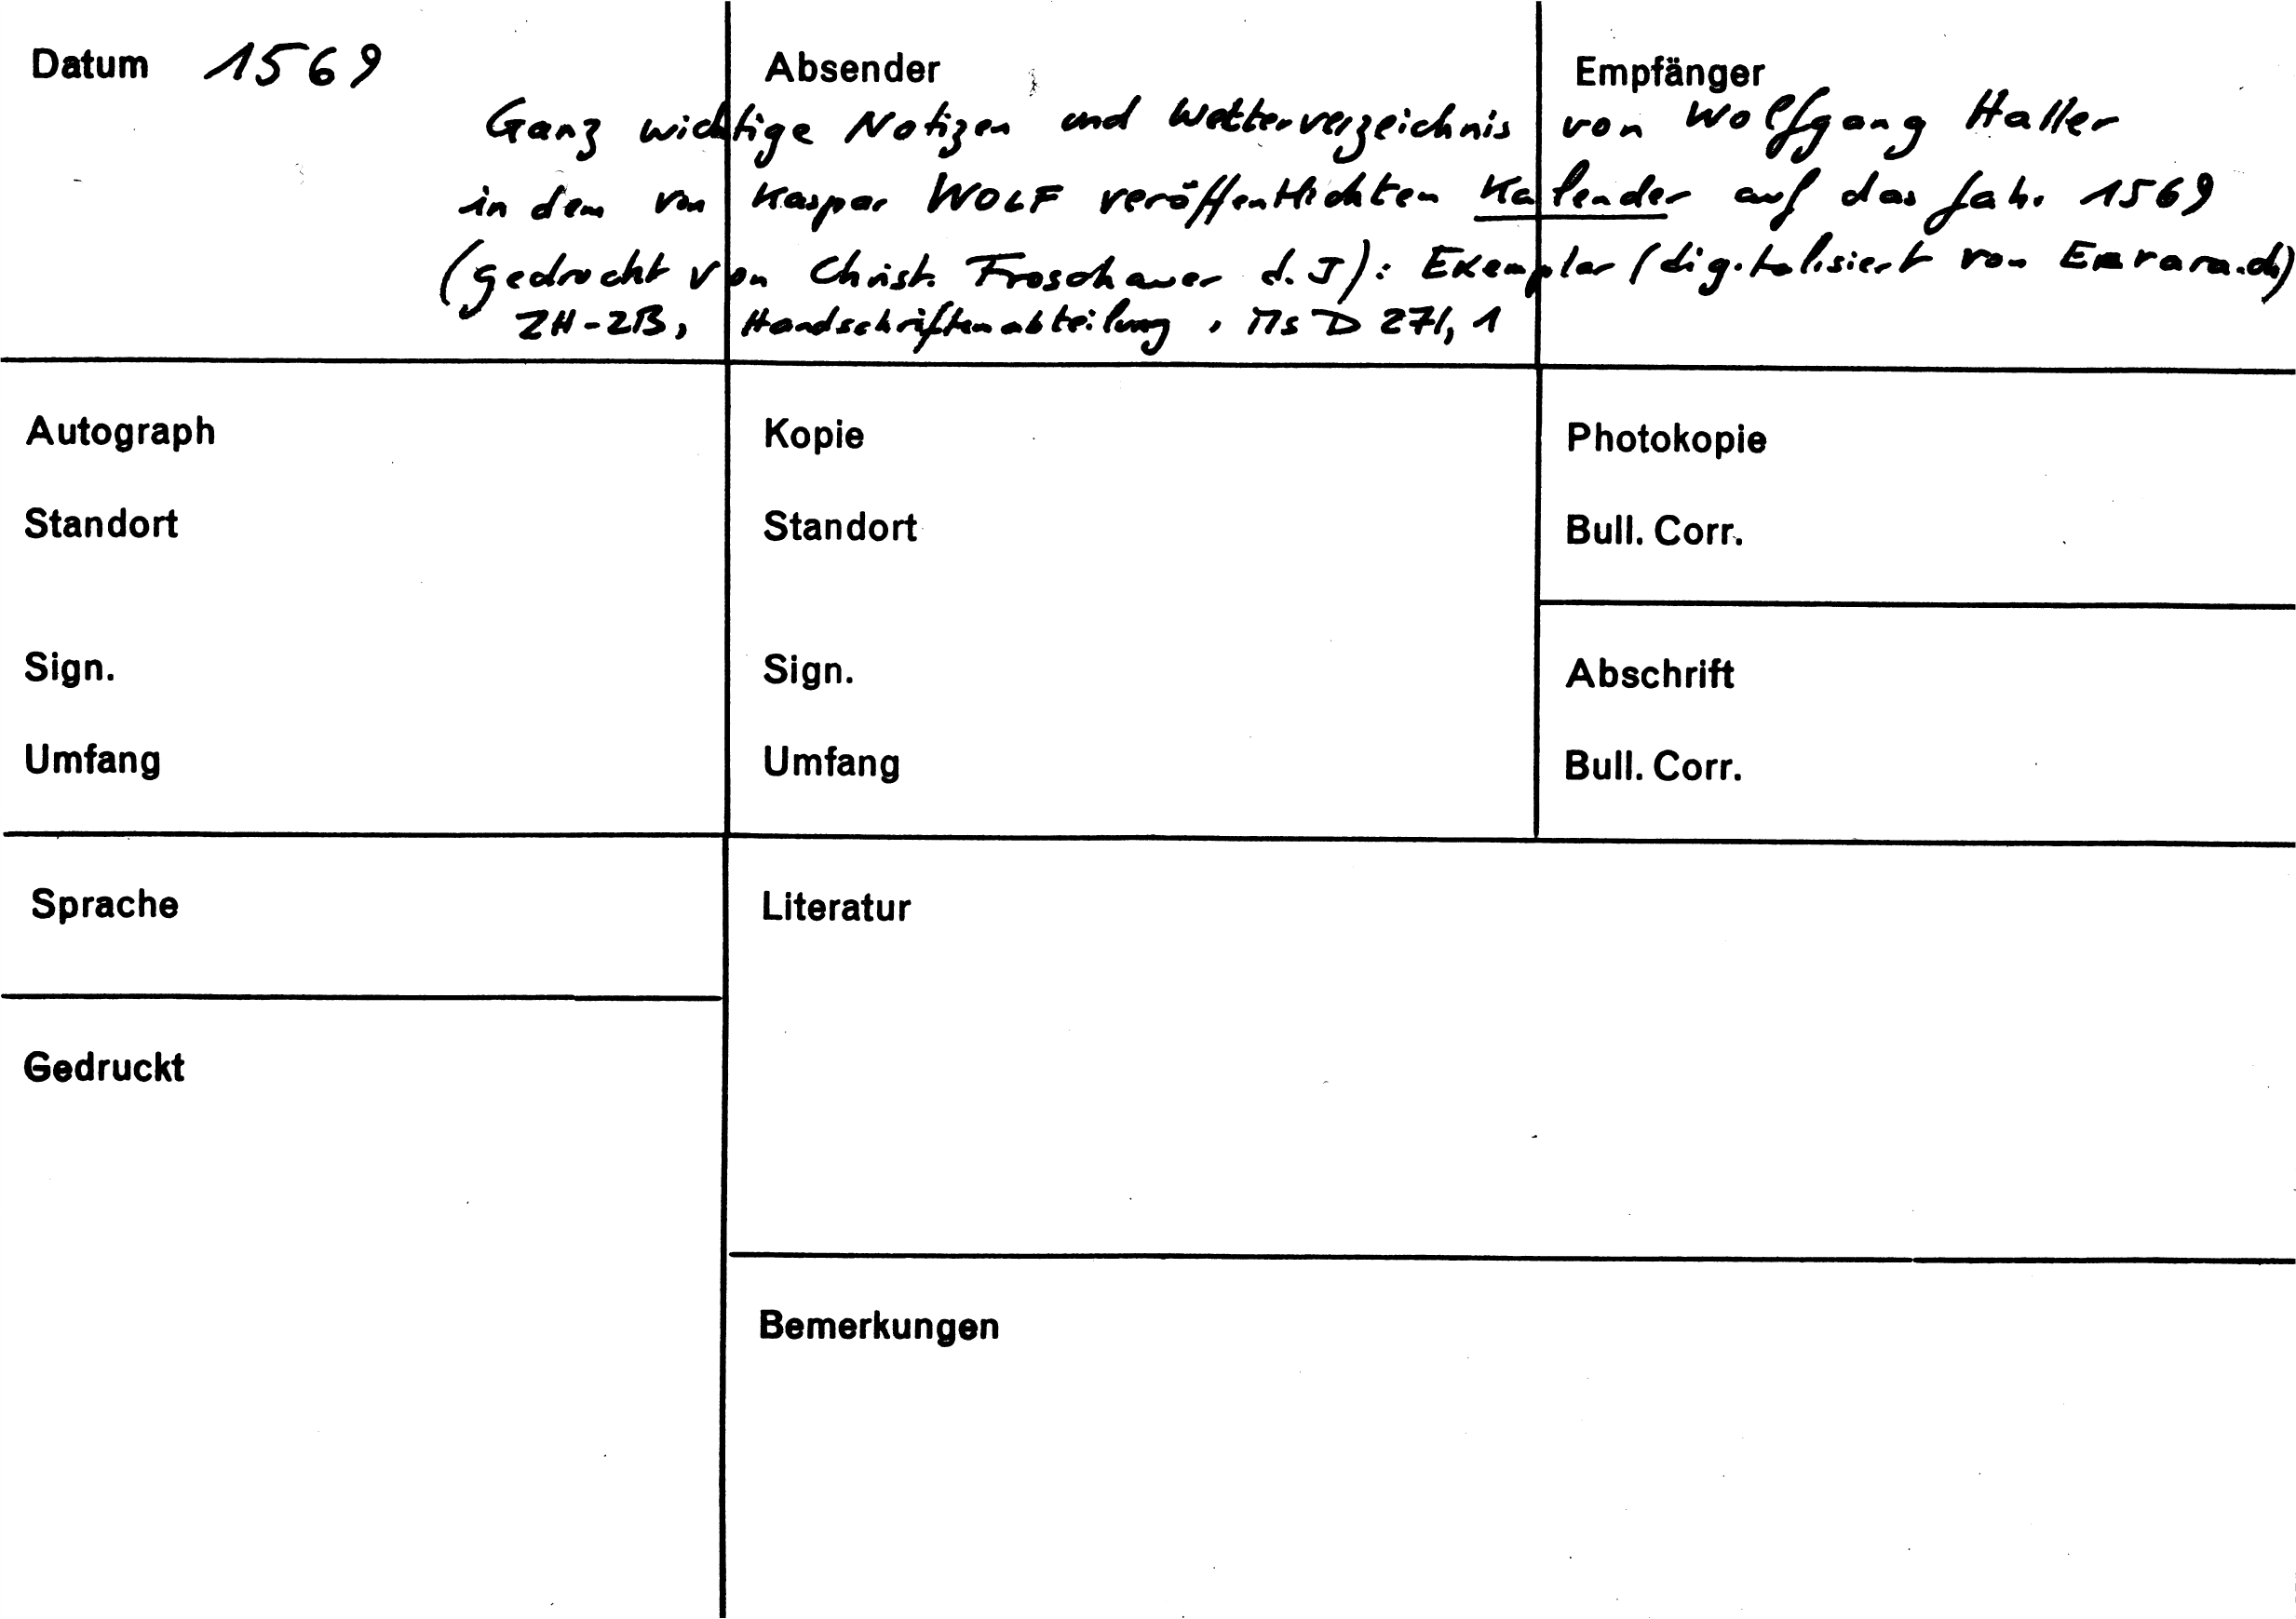 Datum 1569 Absender Empfänger
Ganz wichtige Notizen und Wetterverzeichnis von Wolfgang Haller
in dem von Kaspar WOLF veröffentlichten Kalender auf das Jahr 1569
(gedruckt von Christ. Froschauer d. J): Exemplar (digitalisiert von Erara.ch)
ZH-ZB, Handschriftenabteilung, Ms D 271, 1
Autograph Kopie Photokopie
Standort Standort Bull. Corr.
Sign. Sign. Abschrift
Umfang Umfang Bull. Corr.
Sprache Literatur
Gedruckt
Bemerkungen